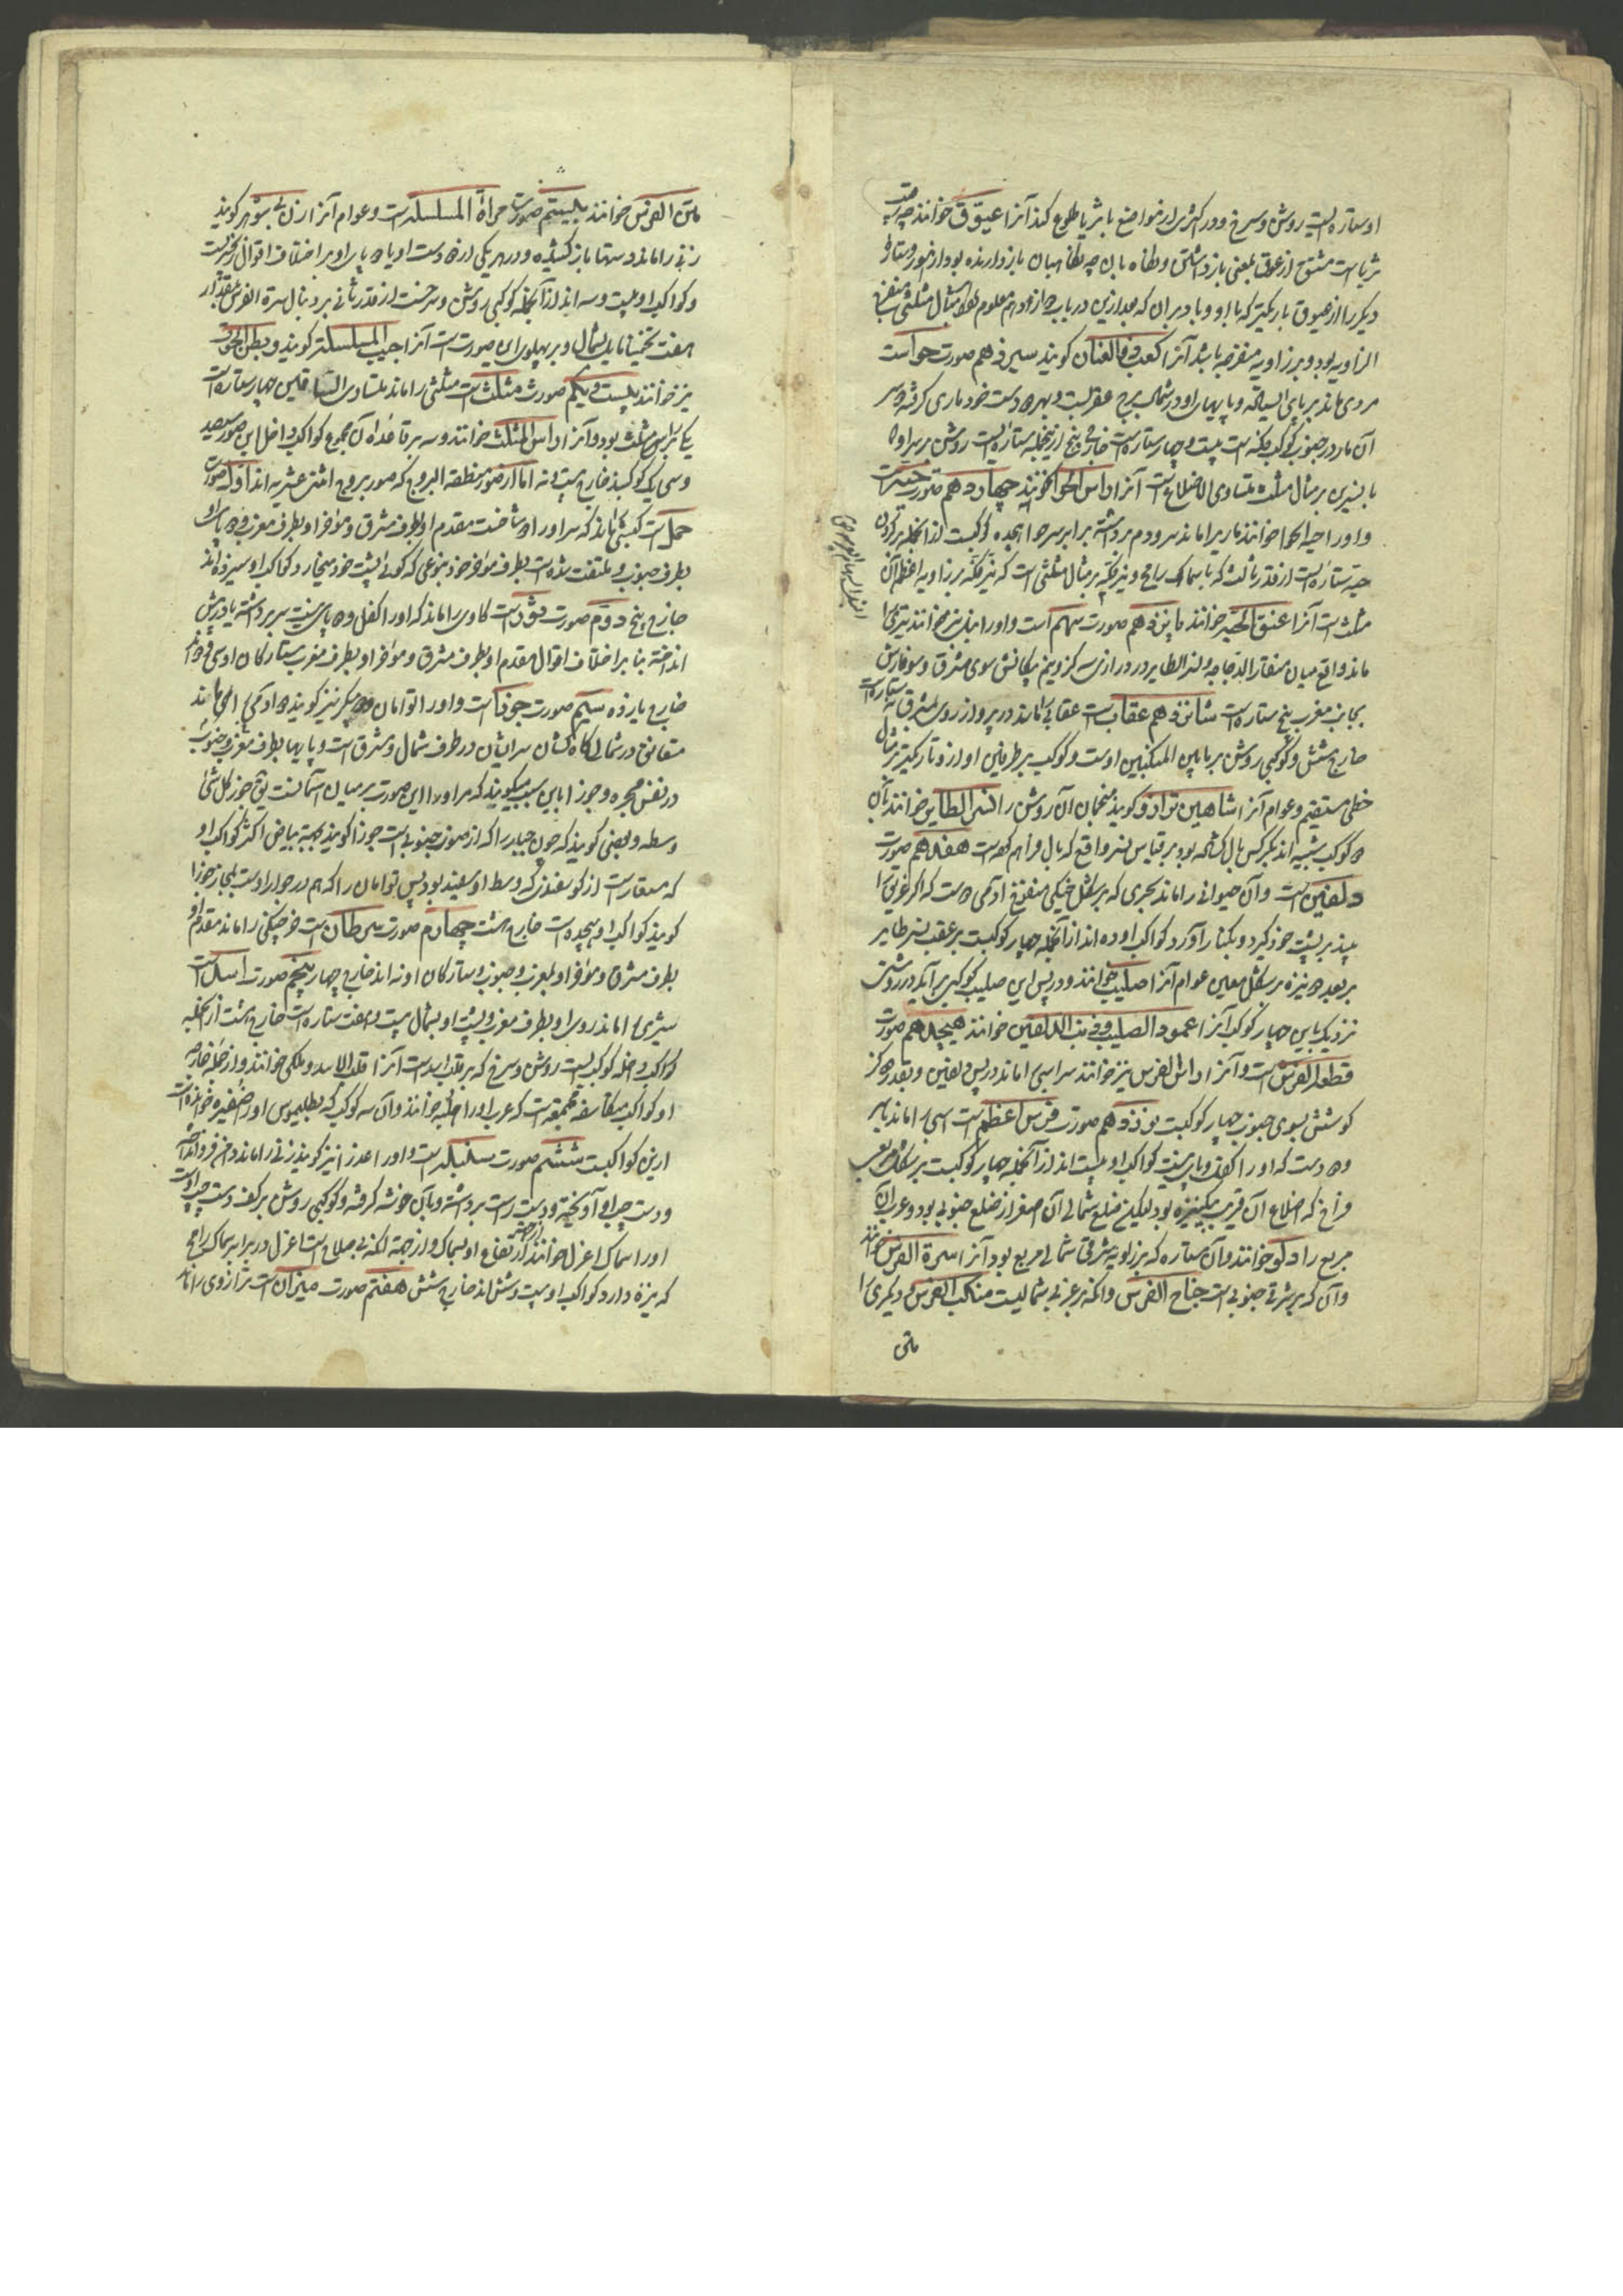 او ستاره ایست روشن و سرخ و در اکثری از مواضع با ثریا طلوع کند آنرا عیوق خوانند چه
ثریاست مشتق از عوق بمعنی باز داشتن و میان باز دارنده بود از ظهور و ستاره
دیگر را از عیوق باریکتر که با او و با دبران که بعد ازین در باب معلوم مثال مثلثی
الزاویه بود و بر زاویه منفرجه باشد آنرا کعب ذی العنان کویند سیزدهم صورت حواست
مردی ماند بر پای ایستاده و پایهای او در شمال برج عقربست و بهر دو دست خود ماری کرفته و سر
آن مار در جنوب است بیست و چهار ستاره است خارج پنج ازینجمله ستاره ایست روشن بر سر او
با بر مثال مثلث متساوی الاضلاع است آنرا راس الحوا خوانند چهاردهم صورت حیه است
و او را حیة الحوا خوانند ماریرا ماند سر و دم برداشته برابر سر حوا هجده کوکبست از انجمله بر کردن
حیه ستاره ایست از قدر ثالث که با سماک رامح و نیر فکه بر مثال مثلثی است که نیر فکه بر زاویه اعظم آن
مثلث است آنرا عنق الحیه خوانند پانزدهم صورت سهم است و او را نیز خوانند تیری را
ماند واقع میان منقار الدجاجه و نسر الطایر در درازی سه کز و نیم پیکانش سوی مشرق و سوفارش
بجانب مغرب پنج ستاره است شانزدهم عقاب است عقابی را ماند در پرواز روی بمشرق نه ستاره است
خارج شش و کوکبی روشن بر مابین المنکبین اوست و کوکب بر طرفین او ازو تاریکتر بر مثال
خطی مستقیم و عوام آنرا شاهین ترازو کویند منجمان آن روشن را النسر الطایر خوانند با آن
دو کوکب تشبیه اند بکرکس بال کشاده بود بر قیاس نسر واقع که بال فراهم کرده است هفدهم صورت
دلفین است و آن حیوانی را ماند بحری که بر شکل خیکی منفوخ آدمی دوست که اگر غریقی را
بیند بر پشت خود کیرد و بکنار آورد کواکب او ده اند از آنجمله چهار کوکبست بر عقب نسر طایر
بر بعد دو نیزه بر شکل معین عوام آنرا صلیب خوانند و در پس این صلیب کوکبی برآید در روشنی
نزدیک باین چهار کوکب آنرا عمود الصلیب و ذنب الدلفین خوانند هیجدهم صورت
قطعة الفرس است و آنرا راس الفرس نیز خوانند سر اسبی را ماند در پس دلفین و بقدر دو کز
کوشش بسوی جنوب چهار کوکبست نوزدهم صورت فرس اعظم است اسبی را ماند با سر
و دو دست که او را کفل و پای نیست کواکب او بیست اند از آنجمله چهار کوکبست بر شکل مربعی
فراخ که اضلاع آن قریب بیکنیزه بود لیکن ضلع شمالی آن اصغر از ضلع جنوبی بود و عرب آن
مربع را دلو خوانند و آن ستاره که بر زاویه شرقی شمالی مربع بود آنرا سرة الفرس خوانند
و آن که بر شرقی جنوبی است جناح الفرس و آنکه بر غربی شمالیست منکب الفرس و دیکری را
متن
متن الفرس خوانند بیستم صورت مراة المسلسله است و عوام آنرا زن بی شوهر کویند
زنی را ماند دستها باز کشیده و در هر یکی از دو دست او یا دو پای او بر اختلاف اقوال زنجیریست
و کواکب او بیست و سه اند از آنجمله کوکبی روشن و سرخست از قدر ثانی بر دنبال سرة الفرس بمقدار
هفت کز تخمینا مایل بشمال و بر پهلوی این صورت است آنرا جنب المسلسله کویند و بطن الحوت
نیز خوانند بیست و یکم صورت مثلث است مثلثی را ماند متساوی الساقین چهار ستاره است
یکی بر راس مثلث بود و آنرا راس المثلث خوانند و سه بر قاعده آن مجموع کواکب داخل این صور سیصد
و سی و یک کوکبند خارج بیست و نه اما از صور منطقة البروج که صور بروج اثنی عشریه اند اول صورت
حمل است کبشی را ماند که سر او را دو شاخست مقدم او بطرف مشرق و موخر او بطرف مغرب و دو پای او
بطرف جنوب و ملتفت شده است بطرف موخر خود بنوعی که کویی پشت خود میخارد کواکب او سیزده اند
خارج پنج دوم صورت ثور است کاوی را ماند که او را کفل و دو پای نیست سر بر داشته یا در پیش
انداخته بنا بر اختلاف اقوال مقدم او بطرف مشرق و موخر او بطرف مغرب ستارکان او سی و دو اند
خارج یازده سیم صورت جوزا است و او را توامان و دو پیکر نیز کویند دو آدمی را ماند
متعانق در شمالی کاه کشان سر ایشان در طرف شمال و مشرق است و پایها بطرف مغرب و جنوب
در نفس مجره و جوزا باین سبب میکویند که مر او را این صورت بر میان آسمانست یق جوز کل شی
وسطه و بعضی کویند که چون جبار را که از صور جنوبی است جوزا کویند بجهة بیاض اکثر کواکب او
که مستعارست از کوسفندی که وسط او سفید بود پس توامان را که هم در جوار اوست بمجاز جوزا
کویند کواکب او هیجده است خارج هشت چهارم صورت سرطان است خرچنکی را ماند مقدم او
بطرف مشرق و موخر او بمغرب و جنوب و ستارکان او نه اند خارج چهار پنجم صورت اسد است
شیری را ماند روی او بطرف مغرب و پشت او بشمال بیست و هفت ستاره است خارج هشت از آنجمله
کواکب داخله کوکبیست روشن و سرخ که بر قلب اسد است آنرا قلب الاسد و ملکی خوانند و از جمله خارجه
او کواکب متکاثفه مجتمعه است که عرب او را هلبه خوانند و آن سه کوکب که بطلیموس او را ضفیره خوانده است
ازین کواکبست ششم صورت سنبله است و او را عذرا نیز کویند زنی را ماند دامن فرو انداخته
و دست چپ او آویخته و دست راست برداشته و بآن خوشه کرفته و کوکبی روشن بر کف دست چپ اوست
او را سماک اعزل خوانند از جهة ارتفاع او بسماک و از جهة آنکه بی سلاح است اعزل در برابر سماک رامح
که نیزه دارد کواکب او بیست و شش اند خارج شش هفتم صورت میزان است ترازوی را ماند